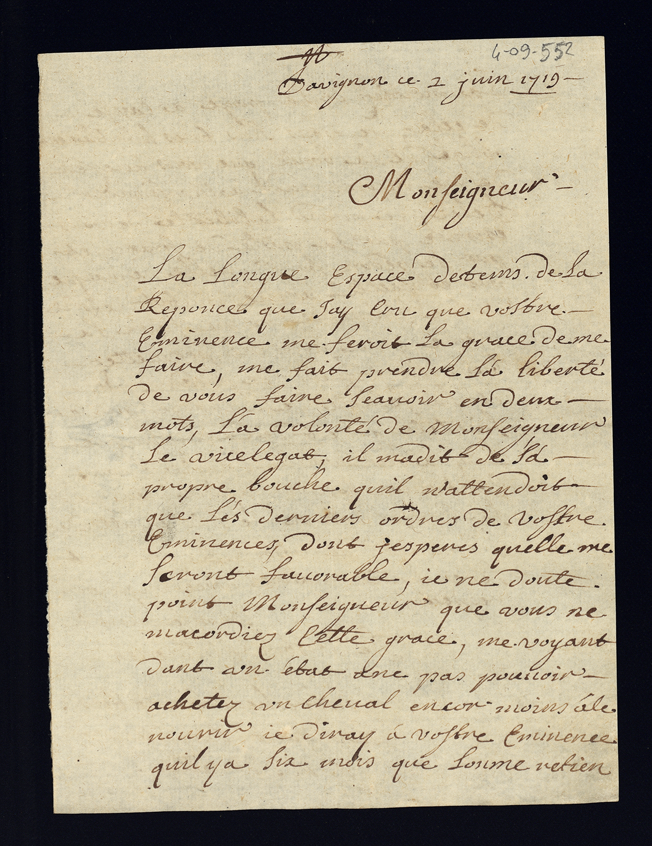 4-09-552
Davignon ce 2 juin 1719
Monseigneur
La Longue Espace detems de la
Reponce que Jay Cru que vostre
Eminence me feroit la grace de me
faire, me fait prendre la liberté
de vous faire scavoir en deux
mots, La volonté de Monseigneur
Le vicelegat, il madit de sa
propre bouche quil n'attendoit
que lés derniers ordres de vostre
Eminences, dont jesperes quelle me
seront favorable, ie ne doute
point Monseigneur que vous ne
macordiez Cette grace, me voyant
dant un état ane pas pouvoir
achetez un cheval encor moins àle
nourir ie diray à vostre Eminence
quil ya six mois que lonme retien